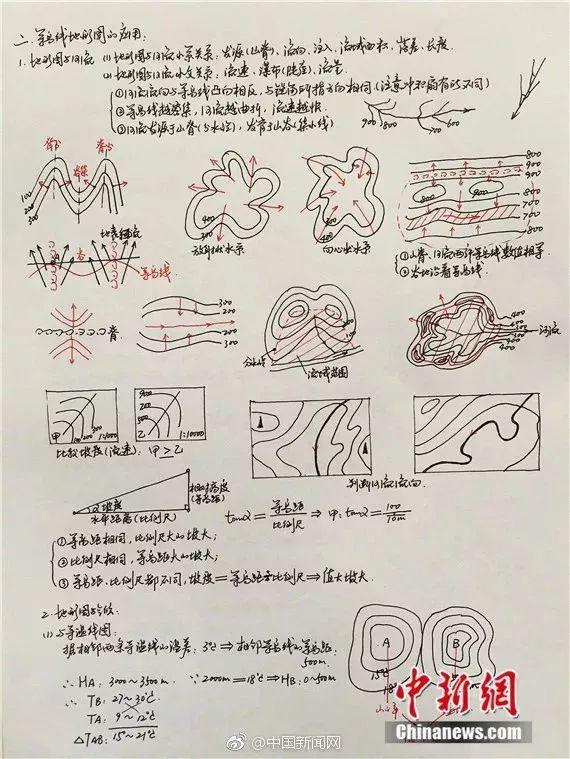 二、等高线地形图的应用:
1. 地形图与河流 (1) 地形图与河流水系关系:发源(山脊)、流向、注入、流域面积、落差、长度.
(2) 地形图与河流水文关系:流速、瀑布(陡崖)、流量
①河流流向与等高线凸向相反,与链筒所指方向相同(注意冲积扇有所不同)
②等高线越密集,河流越曲折,流速越快.
③河流发源于山脊(分水岭),发育于山谷(集水线)
900 800 700 600
背分 谷集 背分
100
200
300
400
300
放射状水系
400
300
向心状水系
800
900
900
800
700
700
800
①山脊、河流两侧等高线数值相等
②谷地沿着等高线
地表径流
谷
等高线
脊
300
200
200
300
分水岭
流域范围
400
300
400
河流
甲 100 200 300 1:1000
乙 1:10000
比较坡度(流速):甲>乙
判断河流流向.
α坡度
相对高度
(等高距)
水平距离(比例尺)
tanα = 等高距/比例尺 ⇒ 甲:tanα = 100/10m
①等高距相同,比例尺大的坡大;
②比例尺相同,等高距大的坡大;
③等高距、比例尺都不同,坡度=等高距÷比例尺⇒值大坡大.
2. 地形图与气候:
(1) 与等温线图:
据相邻两条等温线的温差:3℃⇒相邻等高线的等高距:
500m.
∴ HA: 3000~3500m. ∵2000m=18℃⇒HB:0~500m
∴ TB: 27~30℃
TA: 9~12℃
△TAB: 15~21℃
A
B
15℃
18℃
中新网
Chinanews.com
@中国新闻网